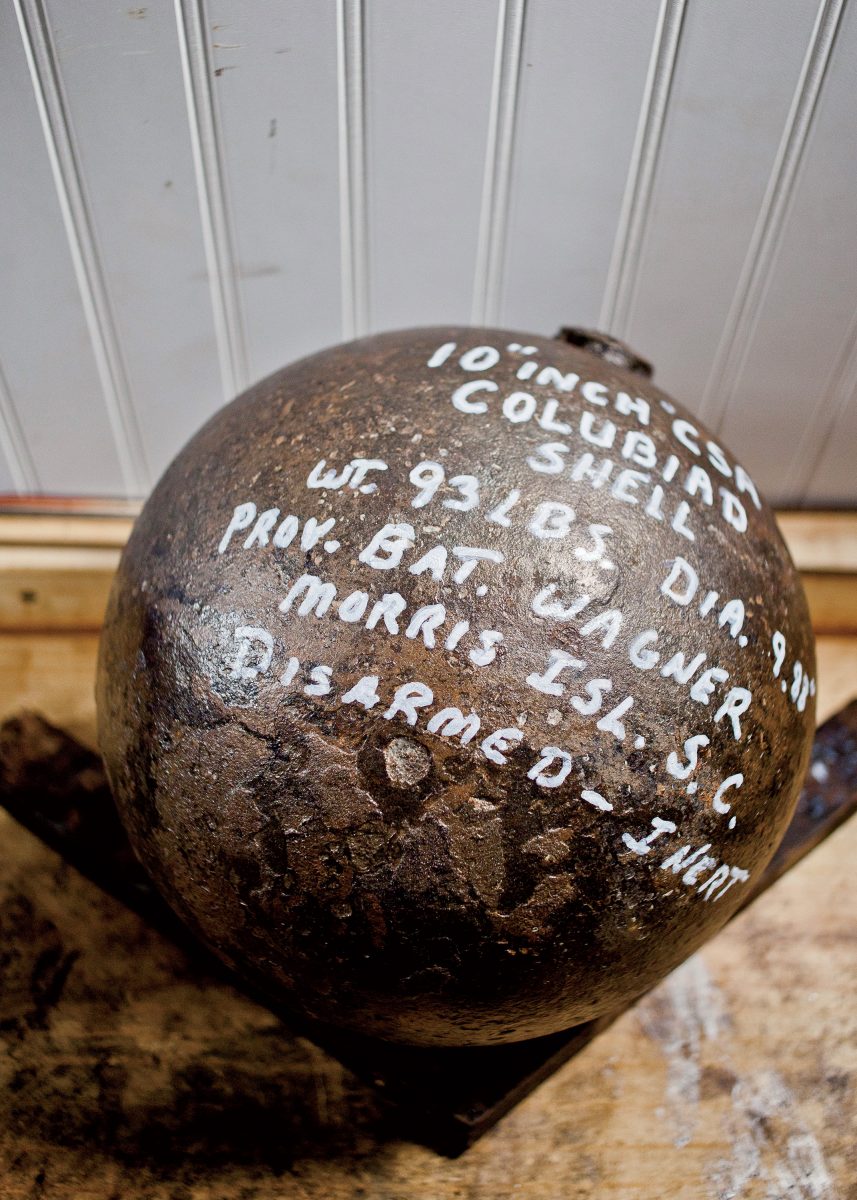 10" INCH "CSA
COLUBIAD
SHELL
WT. 93 LBS. DIA. 9.88"
PROV. BAT. WAGNER
MORRIS ISL. S.C.
DISARMED - INERT